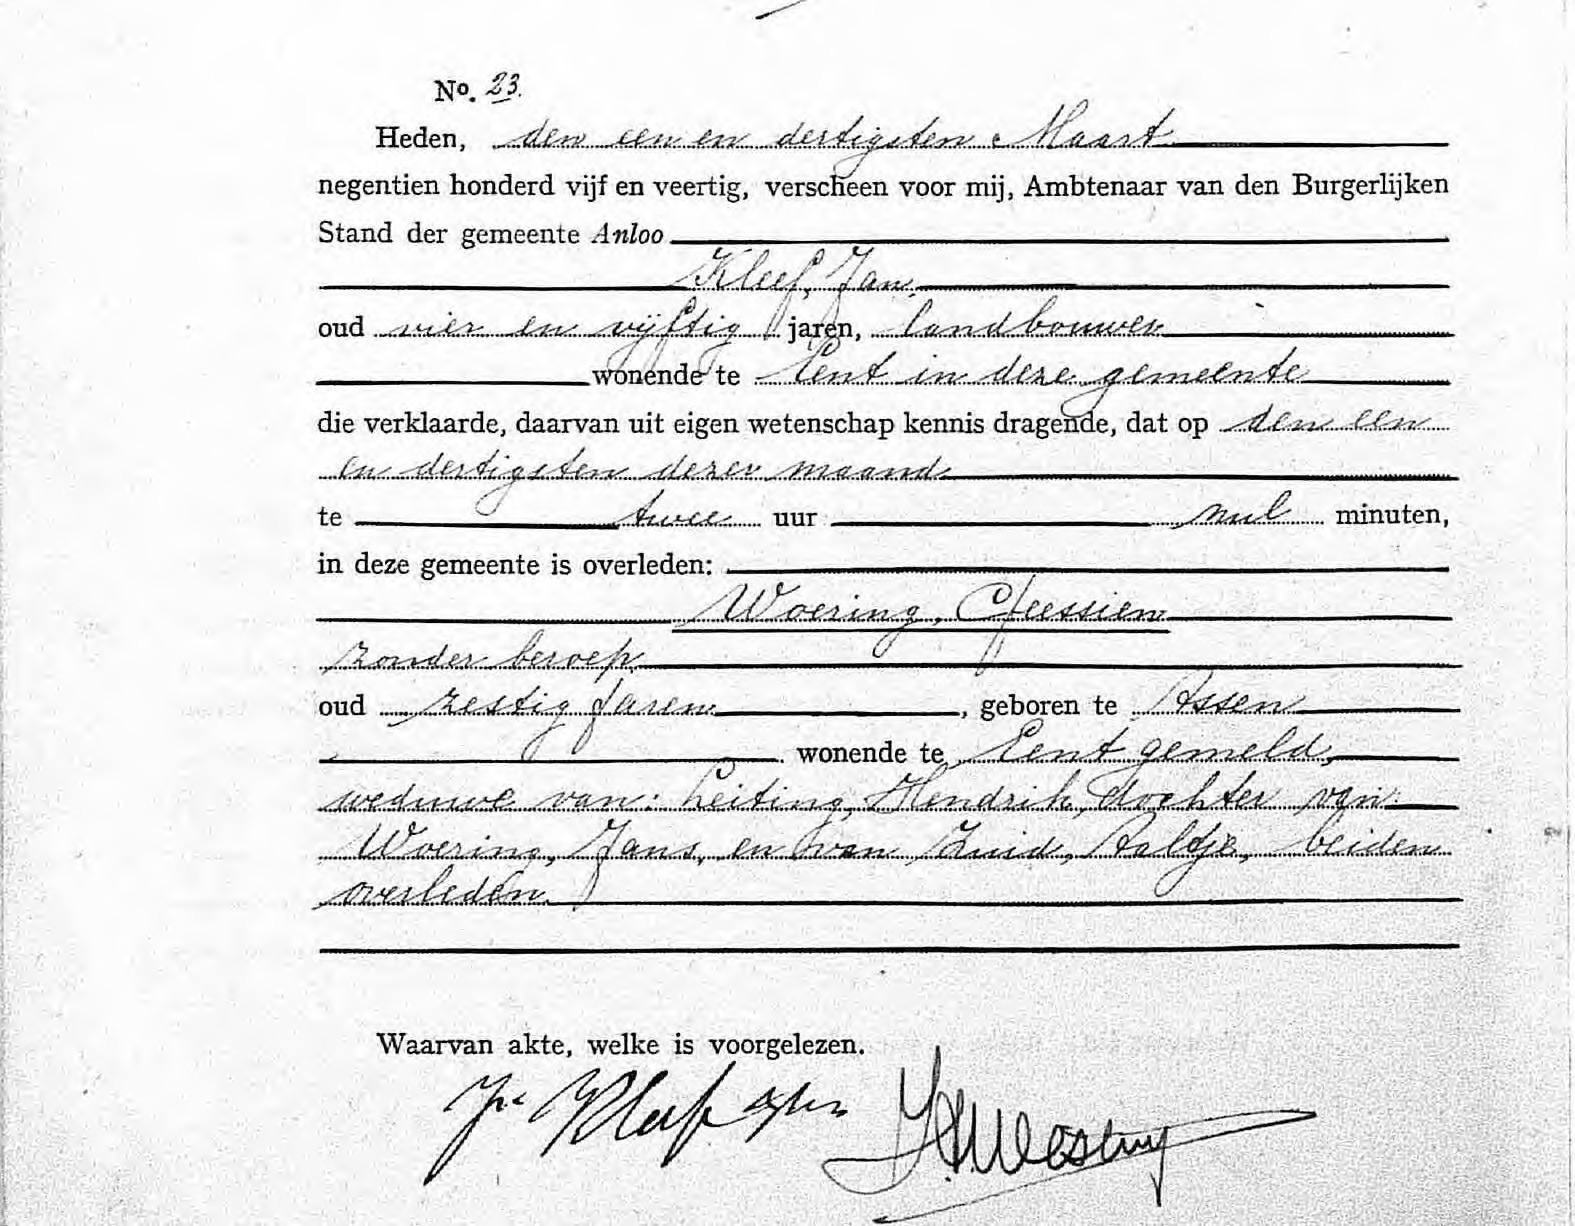 No. 23.
Heden, den een en dertigsten Maart
negentien honderd vijf en veertig, verscheen voor mij, Ambtenaar van den Burgerlijken
Stand der gemeente Anloo
Kleef, Jan,
oud vier en vijftig jaren, landbouwer
wonende te Eent in deze gemeente
die verklaarde, daarvan uit eigen wetenschap kennis dragende, dat op den een
en dertigsten dezer maand
te twee uur nul minuten,
in deze gemeente is overleden:
Woering, Geessien
zonder beroep
oud zestig jaren, geboren te Assen
wonende te Eent gemeld,
weduwe van: Leiting, Hendrik, dochter van:
Woering, Jans, en van Zuid, Aaltje, beiden
overleden.
Waarvan akte, welke is voorgelezen.
Jn Kleef